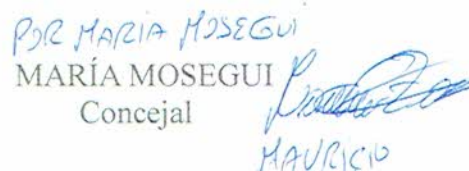 POR MARIA MOSEGUI
MARÍA MOSEGUI
Concejal
MAURICIO